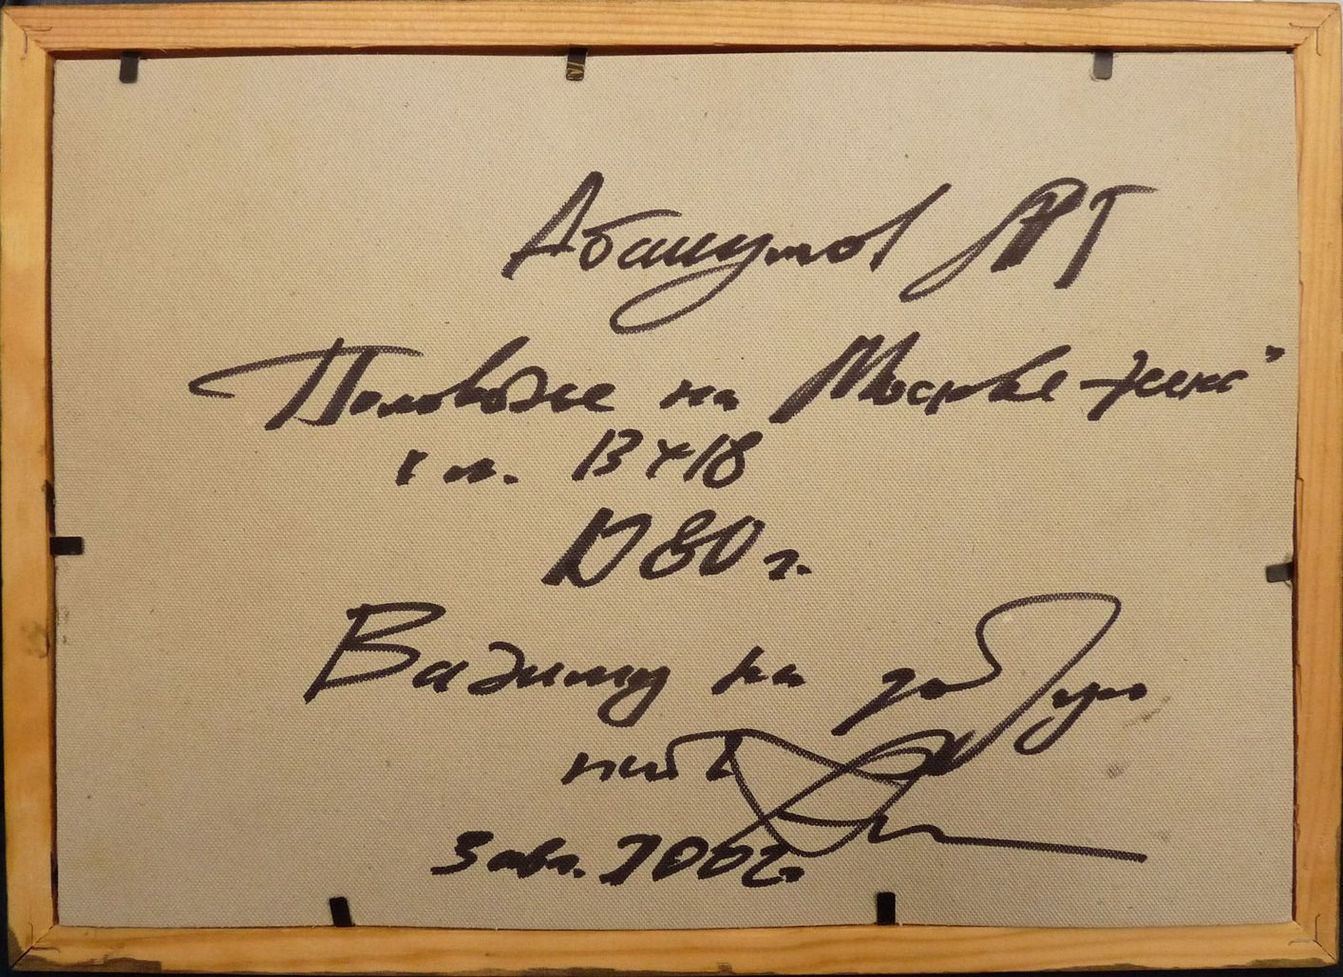 Абакумов МГ
Половодье на Москве-реке"
к м. 13×18
1980 г.
Вадиму на добрую
память
3 авг.